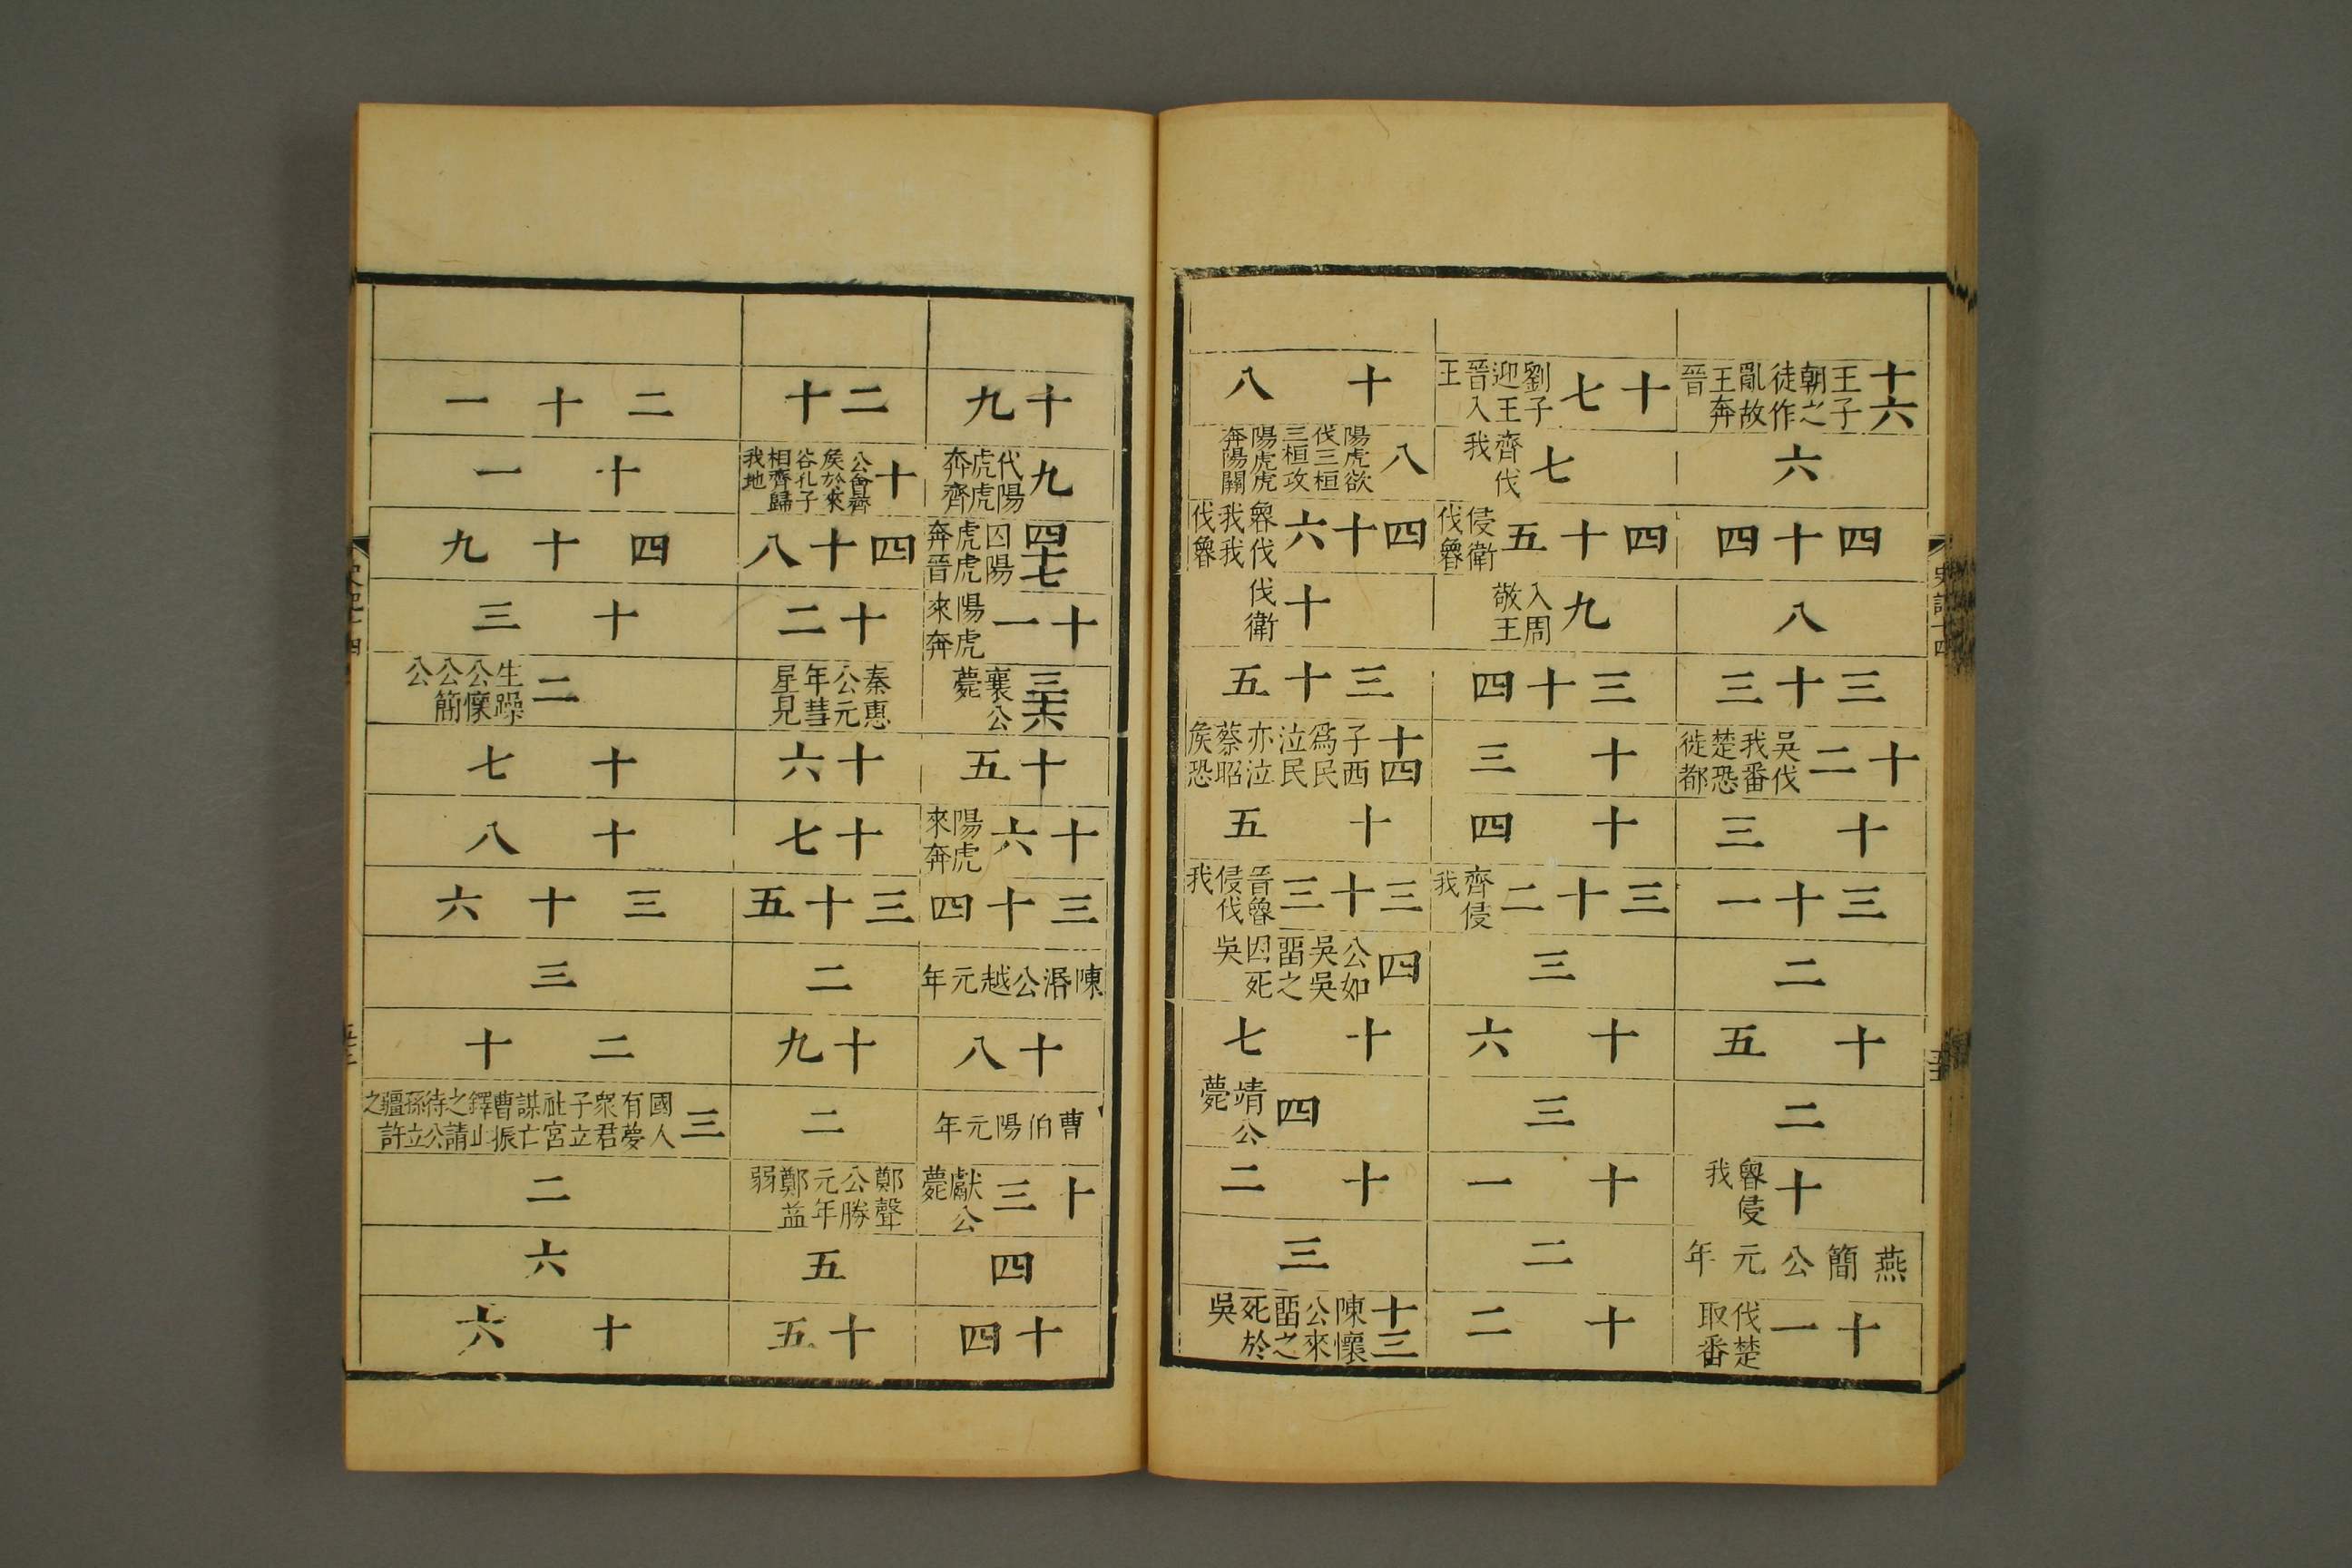 史記十四
十六王子朝之徒作亂故王奔晉
六
四十四
八
三十三
十二吳伐我番楚恐徙都
十三
三十一
二
十五
二
十魯侵我
燕簡公元年
十一伐楚取番
十七劉子迎王晉入王
七齊伐我
四十五侵衛伐魯
九入周敬王
三十四
十三
十四
三十二齊侵我
三
十六
三
十一
二
十二
十八
八陽虎欲伐三桓三桓攻陽虎虎奔陽關
四十六魯伐我我伐魯
十伐衛
三十五
十四子西爲民泣民亦泣蔡昭侯恐
十五
三十三晉魯侵伐我
四公如吳吳畱之因死吳
十七
四靖公薨
十二
三
十三陳懷公來畱之死於吳
十九
九代陽虎虎奔齊
四十七囚陽虎虎奔晉
十一陽虎來奔
三十六襄公薨
十五
十六陽虎來奔
三十四
陳湣公越元年
十八
曹伯陽元年
十三獻公薨
四
十四
二十
十公會齊矦於夾谷孔子相齊歸我地
四十八
十二
秦惠公元年彗星見
十六
十七
三十五
二
十九
二
鄭聲公勝元年鄭益弱
五
十五
二十一
十一
四十九
十三
二生躁公懷公簡公
十七
十八
三十六
三
二十
三國人有夢衆君子立社宮謀亡曹振鐸止之請待公孫立彊許之
二
六
十六